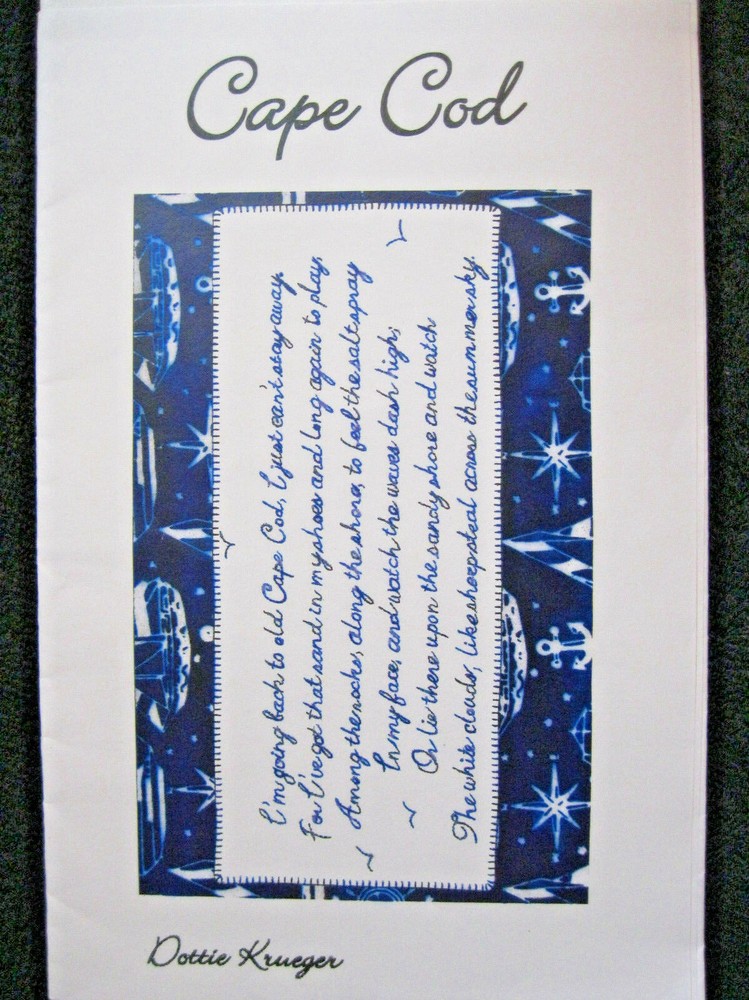 Cape Cod
I'm going back to old Cape Cod, I just can't stay away.
For I've got that sand in my shoes and long again to play,
Among the rocks, along the shore, to feel the salt spray
In my face, and watch the waves dash high;
Or lie there upon the sandy shore and watch
The white clouds, like sheep steal across the summer sky.
Dottie Krueger